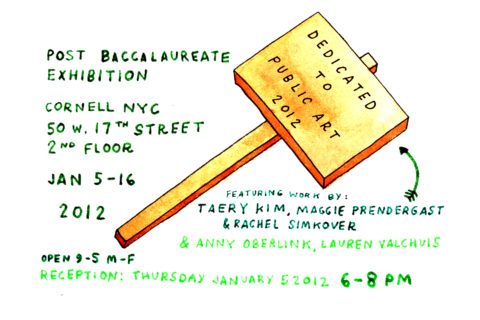 POST BACCALAUREATE
EXHIBITION
CORNELL NYC
50 W. 17TH STREET
2ND FLOOR
JAN 5-16
2012
DEDICATED
TO
PUBLIC ART
2012
FEATURING WORK BY:
TAERY KIM, MAGGIE PRENDERGAST
& RACHEL SIMKOVER
& ANNY OBERLINK, LAUREN VALCHUIS
OPEN 9-5 M-F
RECEPTION: THURSDAY JANUARY 5 2012 6-8 PM